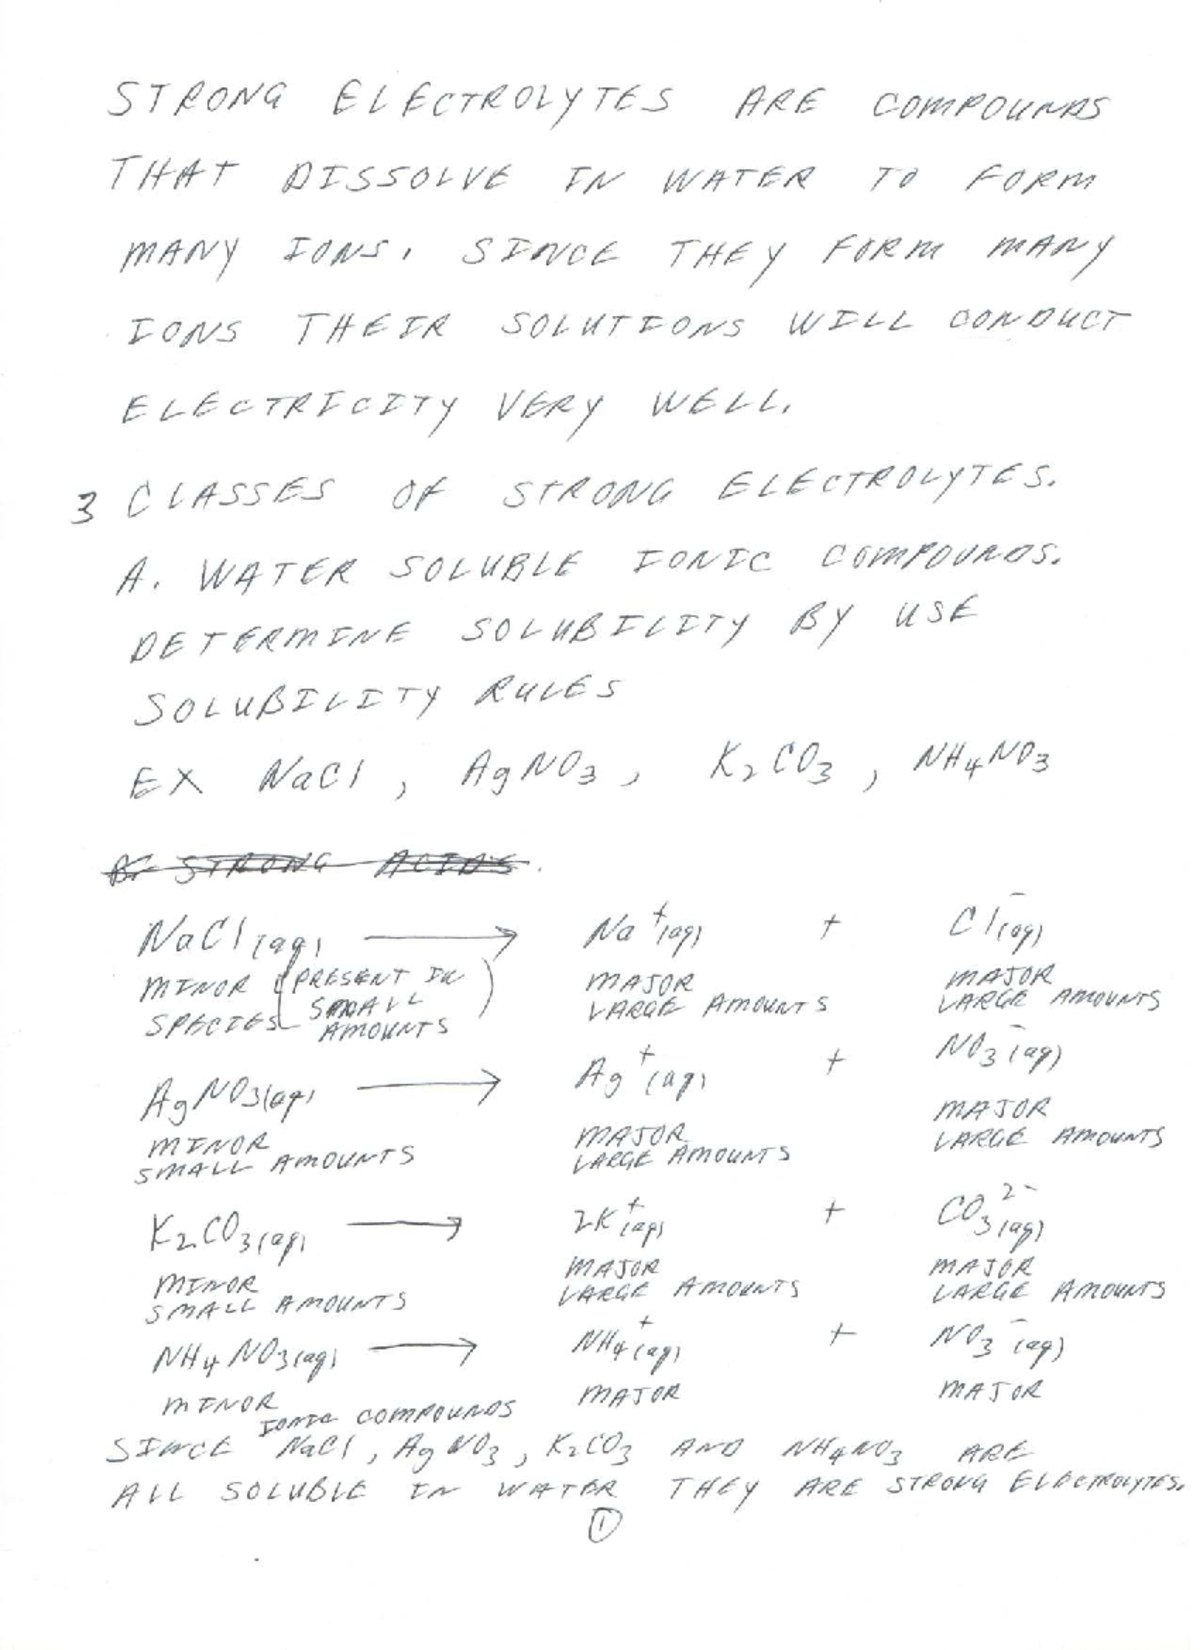 STRONG ELECTROLYTES ARE COMPOUNDS
THAT DISSOLVE IN WATER TO FORM
MANY IONS. SINCE THEY FORM MANY
IONS THEIR SOLUTIONS WILL CONDUCT
ELECTRICITY VERY WELL.
3 CLASSES OF STRONG ELECTROLYTES.
A. WATER SOLUBLE IONIC COMPOUNDS.
DETERMINE SOLUBILITY BY USE
SOLUBILITY RULES
EX NaCl, AgNO₃, K₂CO₃, NH₄NO₃
B. STRONG ACIDS.
NaCl(aq) → Na⁺(aq) + Cl⁻(aq)
MINOR (PRESENT IN MAJOR MAJOR
SPECIES SMALL LARGE AMOUNTS LARGE AMOUNTS
AMOUNTS)
AgNO₃(aq) → Ag⁺(aq) + NO₃⁻(aq)
MINOR MAJOR MAJOR
SMALL AMOUNTS LARGE AMOUNTS LARGE AMOUNTS
K₂CO₃(aq) → 2K⁺(aq) + CO₃²⁻(aq)
MINOR MAJOR MAJOR
SMALL AMOUNTS LARGE AMOUNTS LARGE AMOUNTS
NH₄NO₃(aq) → NH₄⁺(aq) + NO₃⁻(aq)
MINOR MAJOR MAJOR
IONIC COMPOUNDS
SINCE NaCl, AgNO₃, K₂CO₃ AND NH₄NO₃ ARE
ALL SOLUBLE IN WATER THEY ARE STRONG ELECTROLYTES.
①